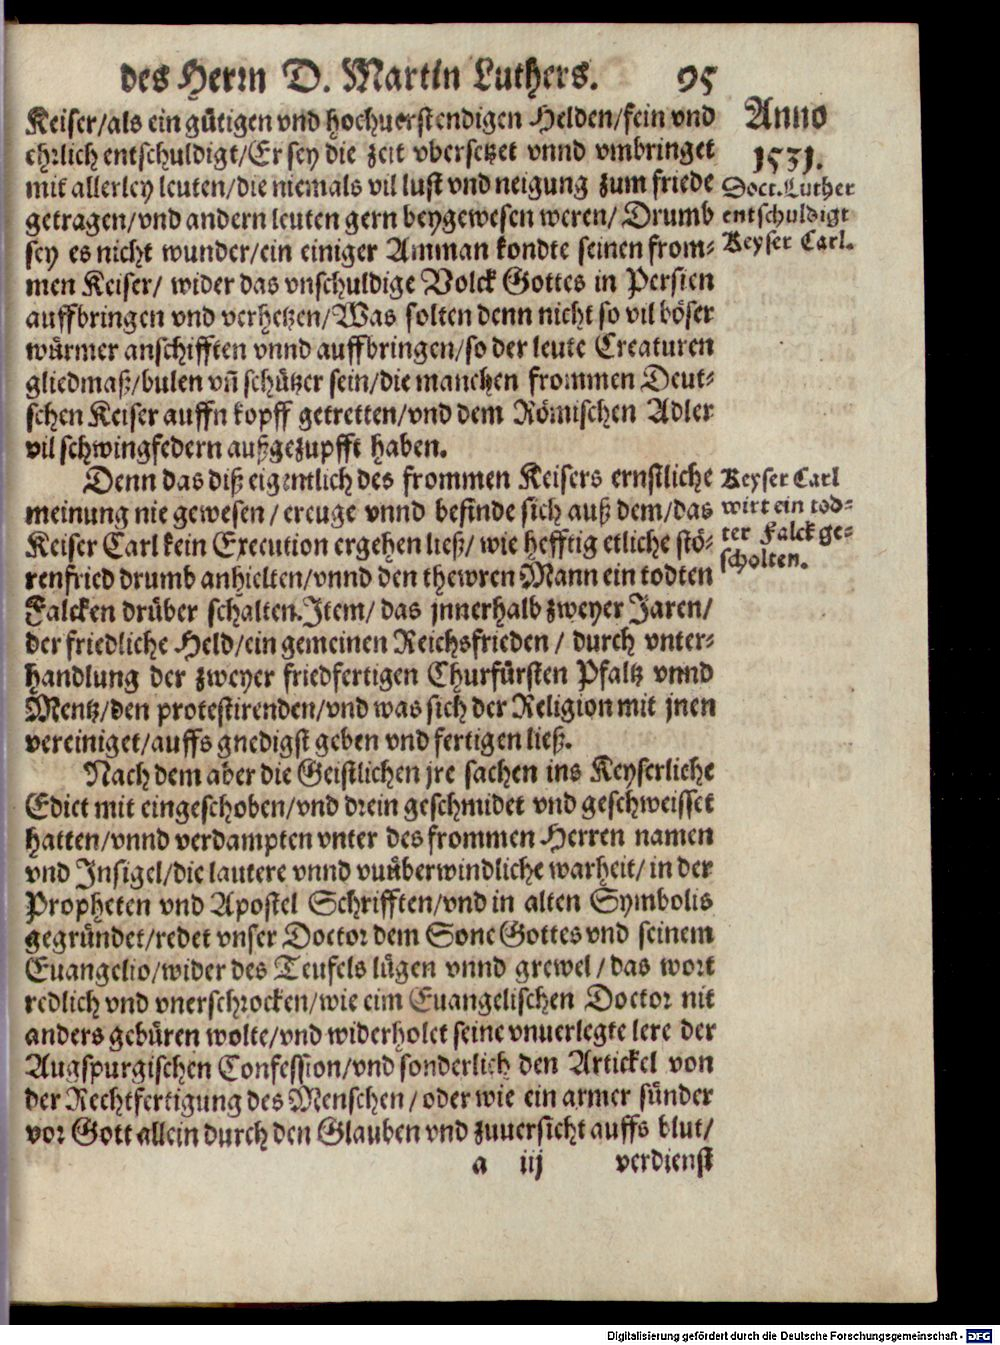 des Herrn D. Martin Luthers. 95
Keiser/als ein gütigen vnd hochuerstendigen Helden/fein vnd
ehrlich entschuldigt/Er sey die zeit vbersetzet vnnd vmbringet
mit allerley leuten/die niemals vil lust vnd neigung zum friede
getragen/vnd andern leuten gern beygewesen weren/Drumb
sey es nicht wunder/ein einiger Amman kondte seinen from-
men Keiser/ wider das vnschuldige Volck Gottes in Persien
auffbringen vnd verhetzen/Was solten denn nicht so vil böser
würmer anschifften vnnd auffbringen/so der leute Creaturen
gliedmaß/bulen vñ schützer sein/die manchen frommen Deut-
schen Keiser auffn kopff getretten/vnd dem Römischen Adler
vil schwingfedern außgezupfft haben.
Anno
1531.
Doct. Luther
entschuldigt
Keyser Carl.
Denn das diß eigentlich des frommen Keisers ernstliche
meinung nie gewesen / ereuge vnnd befinde sich auß dem/das
Keiser Carl kein Execution ergehen ließ/ wie hefftig etliche stö-
renfried drumb anhielten/vnnd den thewren Mann ein todten
Falcken drüber schalten. Item/ das jnnerhalb zweyer Jaren/
der friedliche Held/ein gemeinen Reichsfrieden / durch vnter-
handlung der zweyer friedfertigen Churfürsten Pfaltz vnnd
Mentz/den protestirenden/vnd was sich der Religion mit jnen
vereiniget/auffs gnedigst geben vnd fertigen ließ.
Keyser Carl
wirt ein tod-
ter Falck ge-
scholten.
Nach dem aber die Geistlichen jre sachen ins Keyserliche
Edict mit eingeschoben/vnd drein geschmidet vnd geschweisset
hatten/vnnd verdampten vnter des frommen Herren namen
vnd Insigel/die lautere vnnd vnüberwindliche warheit/ in der
Propheten vnd Apostel Schrifften/vnd in alten Symbolis
gegründet/redet vnser Doctor dem Sone Gottes vnd seinem
Euangelio/wider des Teufels lügen vnnd grewel / das wort
redlich vnd vnerschrocken/wie eim Euangelischen Doctor nit
anders gebüren wolte/vnd widerholet seine vnuerlegte lere der
Augspurgischen Confession/vnd sonderlich den Artickel von
der Rechtfertigung des Menschen / oder wie ein armer sünder
vor Gott allein durch den Glauben vnd zuuersicht auffs blut/
a iij verdienst
Digitalisierung gefördert durch die Deutsche Forschungsgemeinschaft - DFG